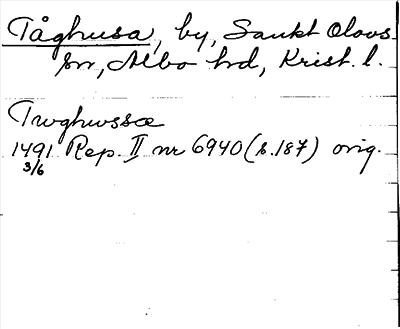 Tåghusa, by, Sankt Olovs
sn, Albo hd, Krist. l.
Twghwssæ
1491 Rep. II nr 6940 (s. 187) orig.
3/6